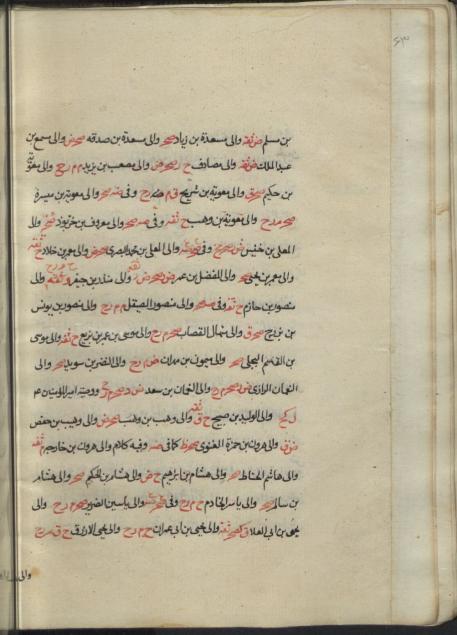 ۶۳
بن مسلم ض ثقه والى مسعدة بن زياد صحر والى مسعدة بن صدقه صحر ض والى مسمع بن
عبد الملك ض ثقه والى مصادف ح والى مصعب بن يزيد م م ر ح والى معوية
بن حكيم صحر ق والى معوية بن شريح ق م ح وفى صه صحر والى معوية بن ميسرة
صحر م ر ح والى معوية بن وهب ح ثقه وفى صه صحر والى معروف بن خربوذ والى
المعلى بن خنيس ض صحر ح وفى والى المعلى بن محمد البصرى ض والى معمر بن خلاد ح ثقه
والى معمر بن يحيى صحر والى المفضل بن عمر ض صحر ض والى منذر بن جيفر والى
منصور بن حازم ح ثقه وفى صه صحر والى منصور الصيقل م م ر ح والى منصور بن يونس
بن بزرج صحر ق والى منهال القصاب صحر م ر ح والى موسى بن عمر بن بزيع ح ثقه والى موسى
بن القسم البجلى صحر والى ميمون بن مهران ض م ر ح والى النضر بن سويد صحر والى
النعمان الرازى ض صحر م ر ح والى النعمان بن سعد ض صحر م ر ح ووصية امير المؤمنين عم
والى الوليد بن صبيح ح ق ثقه والى وهب بن وهب صحر ض والى وهيب بن حفص
ض وق والى هرون بن حمزة الغنوى صحر كما فى صه وفيه كلام والى هرون بن خارجه ثقه
والى هاشم الحناط صحر والى هشام بن ابرهيم ح ض والى هشام بن الحكم صحر والى هشام
بن سالم صحر والى ياسر الخادم ح م ر ح وفى والى ياسين الضرير صحر م ر ح والى
يحيى بن ابى العلا ق صحر ثقه والى يحيى بن ابى عمران ح م ر ح والى يحيى الازرق ح ق م ر ح